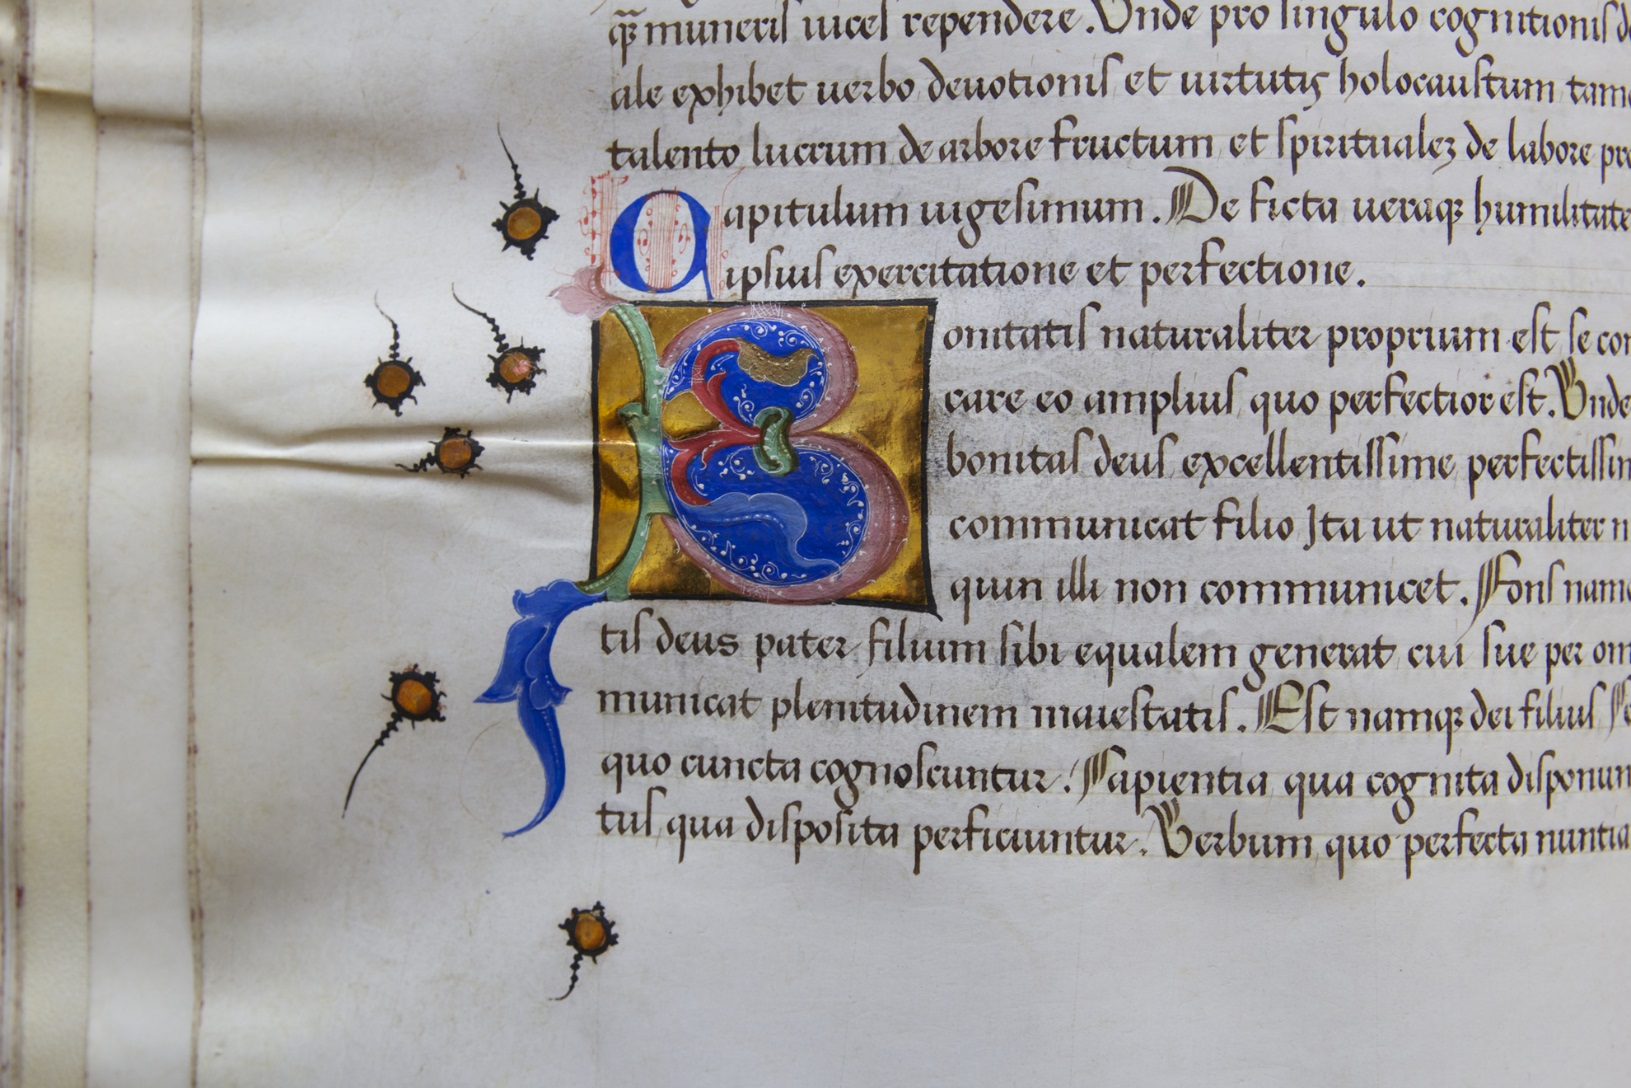 qꝫ muneris uices rependere. Unde pro singulo cognitionis
ale exhibet uerbo deuotionis et uirtutis holocaustum
talento lucrum de arbore fructum et spiritualeꝫ de labore
Capitulum uigesimum. De ficta ueraqꝫ humilitate
ipsius exercitatione et perfectione.
Bonitatis naturaliter proprium est se
care eo amplius quo perfectior est. Unde
bonitas deus excellentissime
communicat filio Ita ut naturaliter
quin illi non communicet. Fons
tis deus pater filium sibi equalem generat cui sue per
municat plenitudinem maiestatis. Est namqꝫ dei filius
quo cuncta cognoscuntur. Sapientia qua cognita
tus qua disposita perficiuntur. Verbum quo perfecta